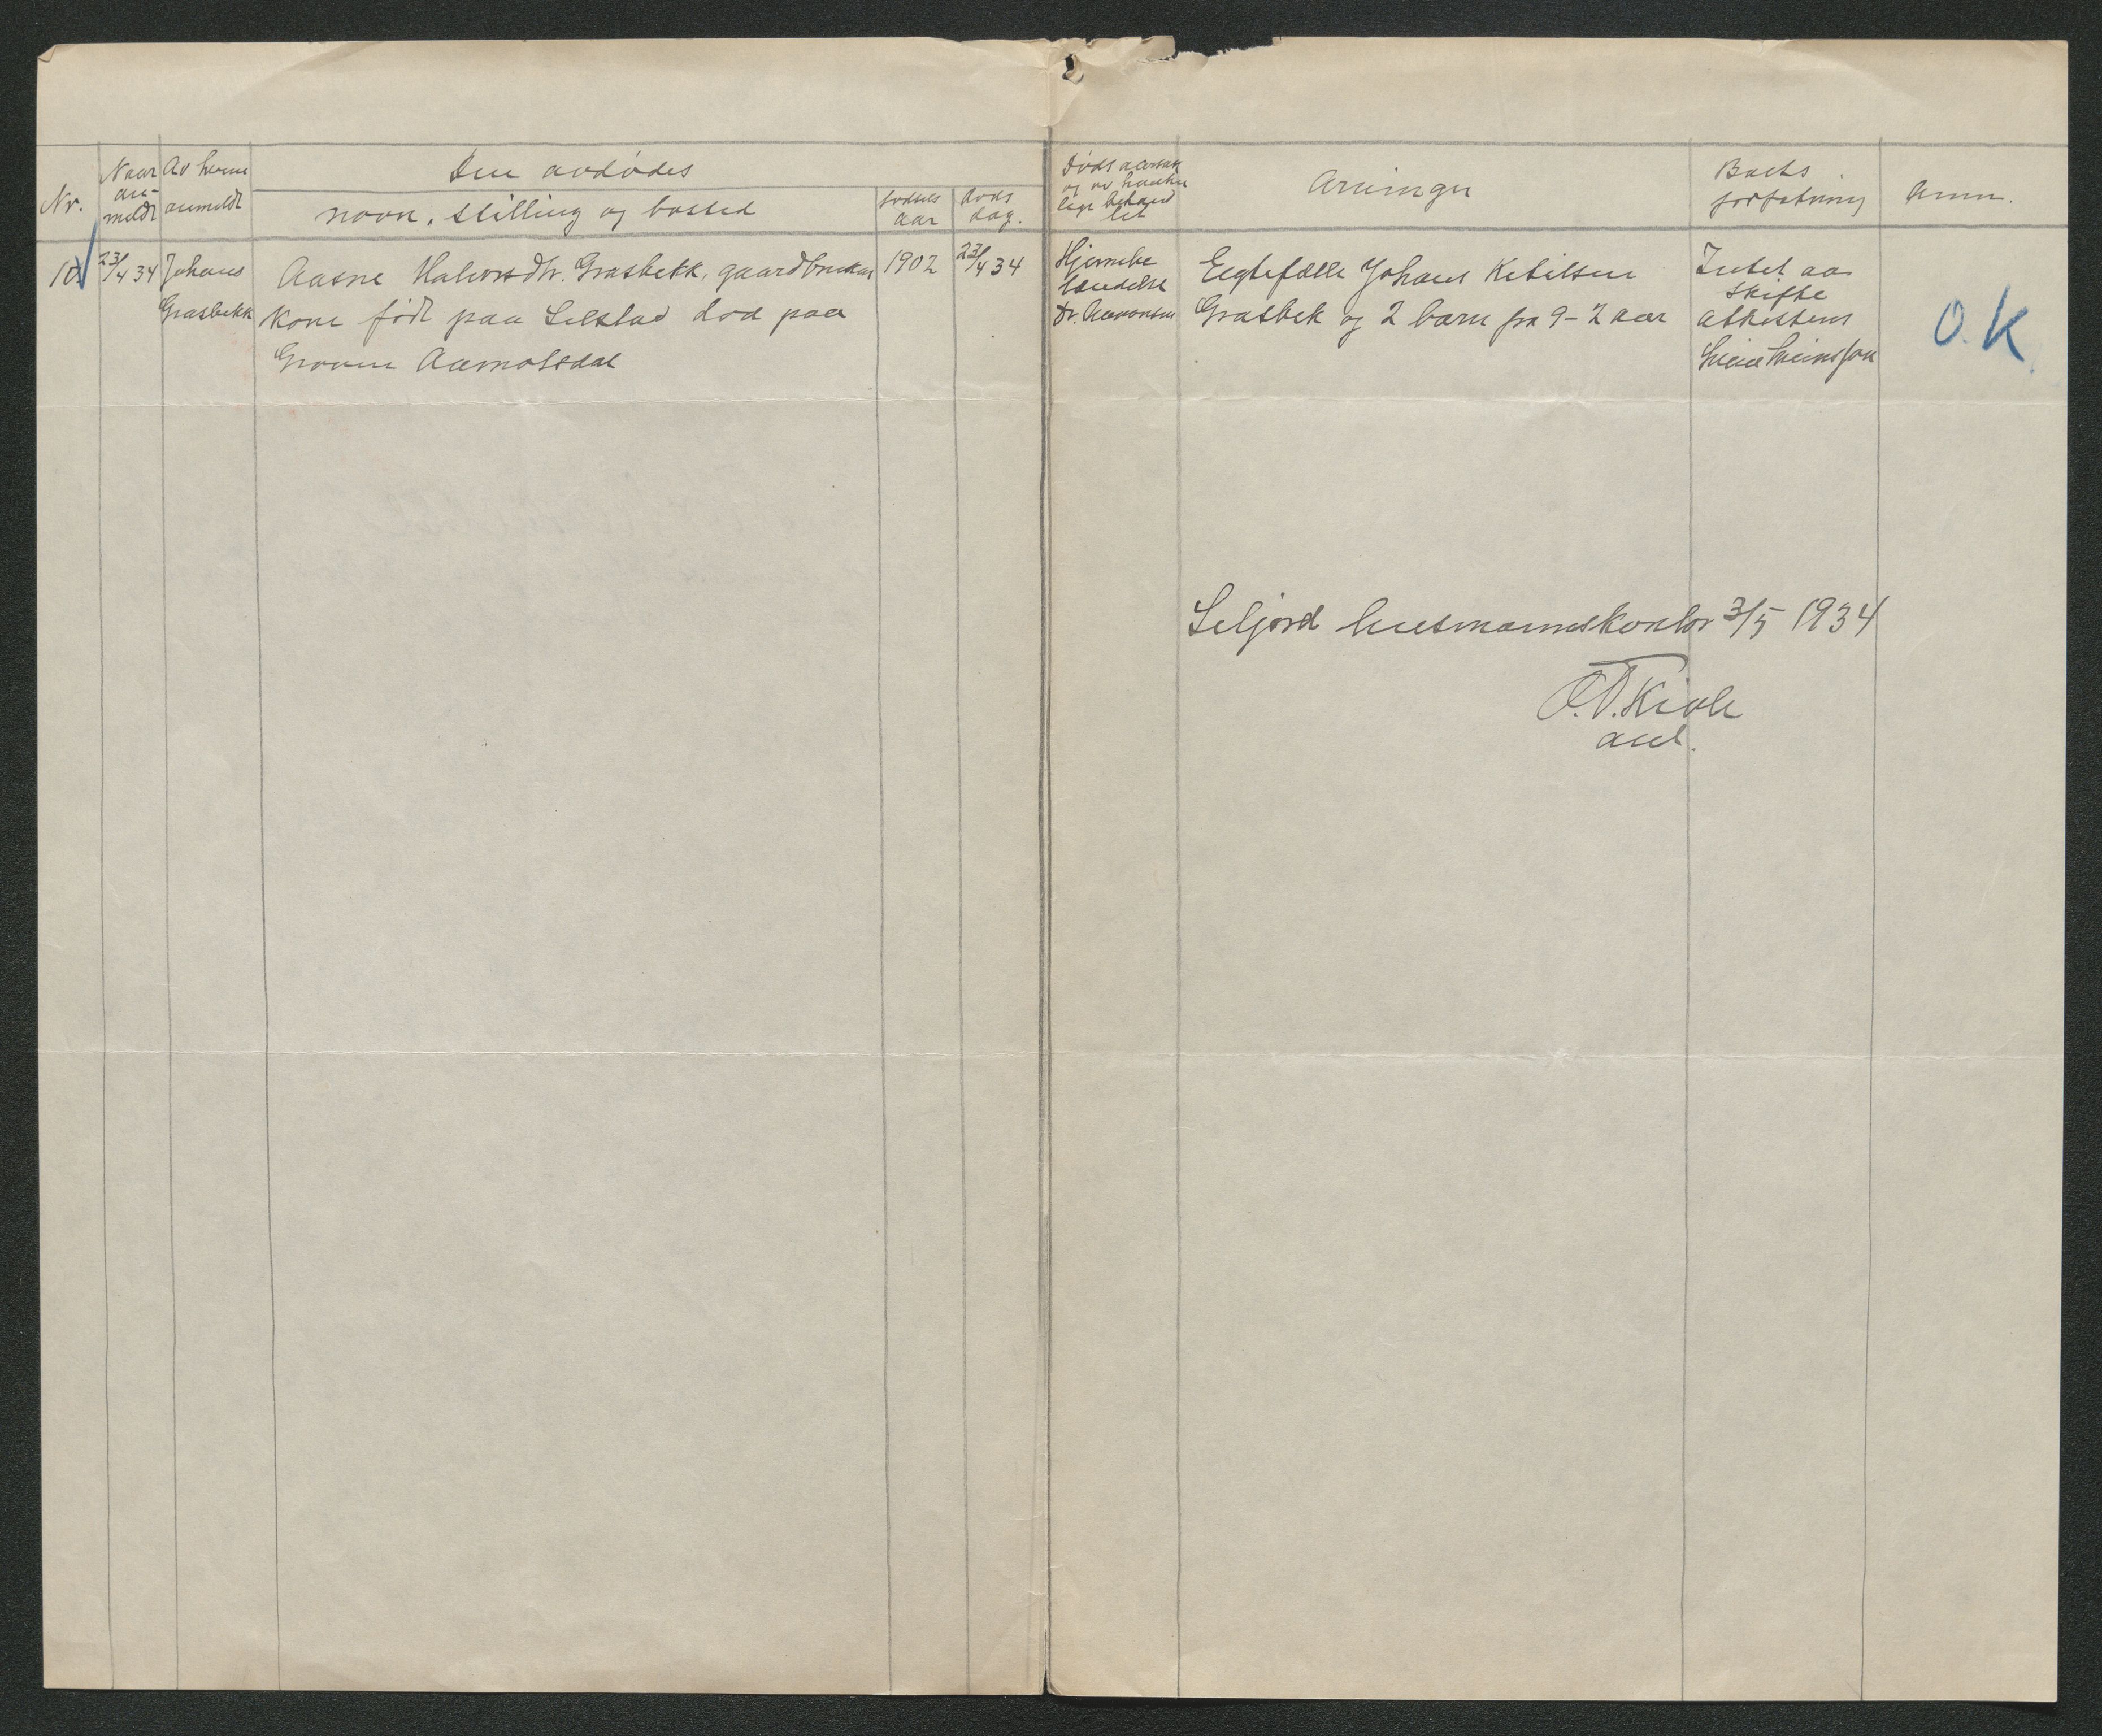 Nr.
Naar an-meldt
Av hvem anmeldt
Den avdødes
navn, stilling og bosted
fødsels aar
døds dag.
Døds aarsak
og av hvilken
lege behand
let
Arvinger
Boets
forfatning
Anm.
10
23/4 34
Johans
Grasbekk
Aasne Halvorsdtr. Grasbekk, gaardbruker
kone født paa Selstad død paa
Groven Aamotsdal
1902
23/4 34
Hjernebe
tændelse
Dr. Aaronsen
Egtefælle Johans Ketilsen
Grasbek og 2 barn fra 9-2 aar
Intet aa
skifte
attestens
O.K
Seljord lensmannskontor 3/5 1934